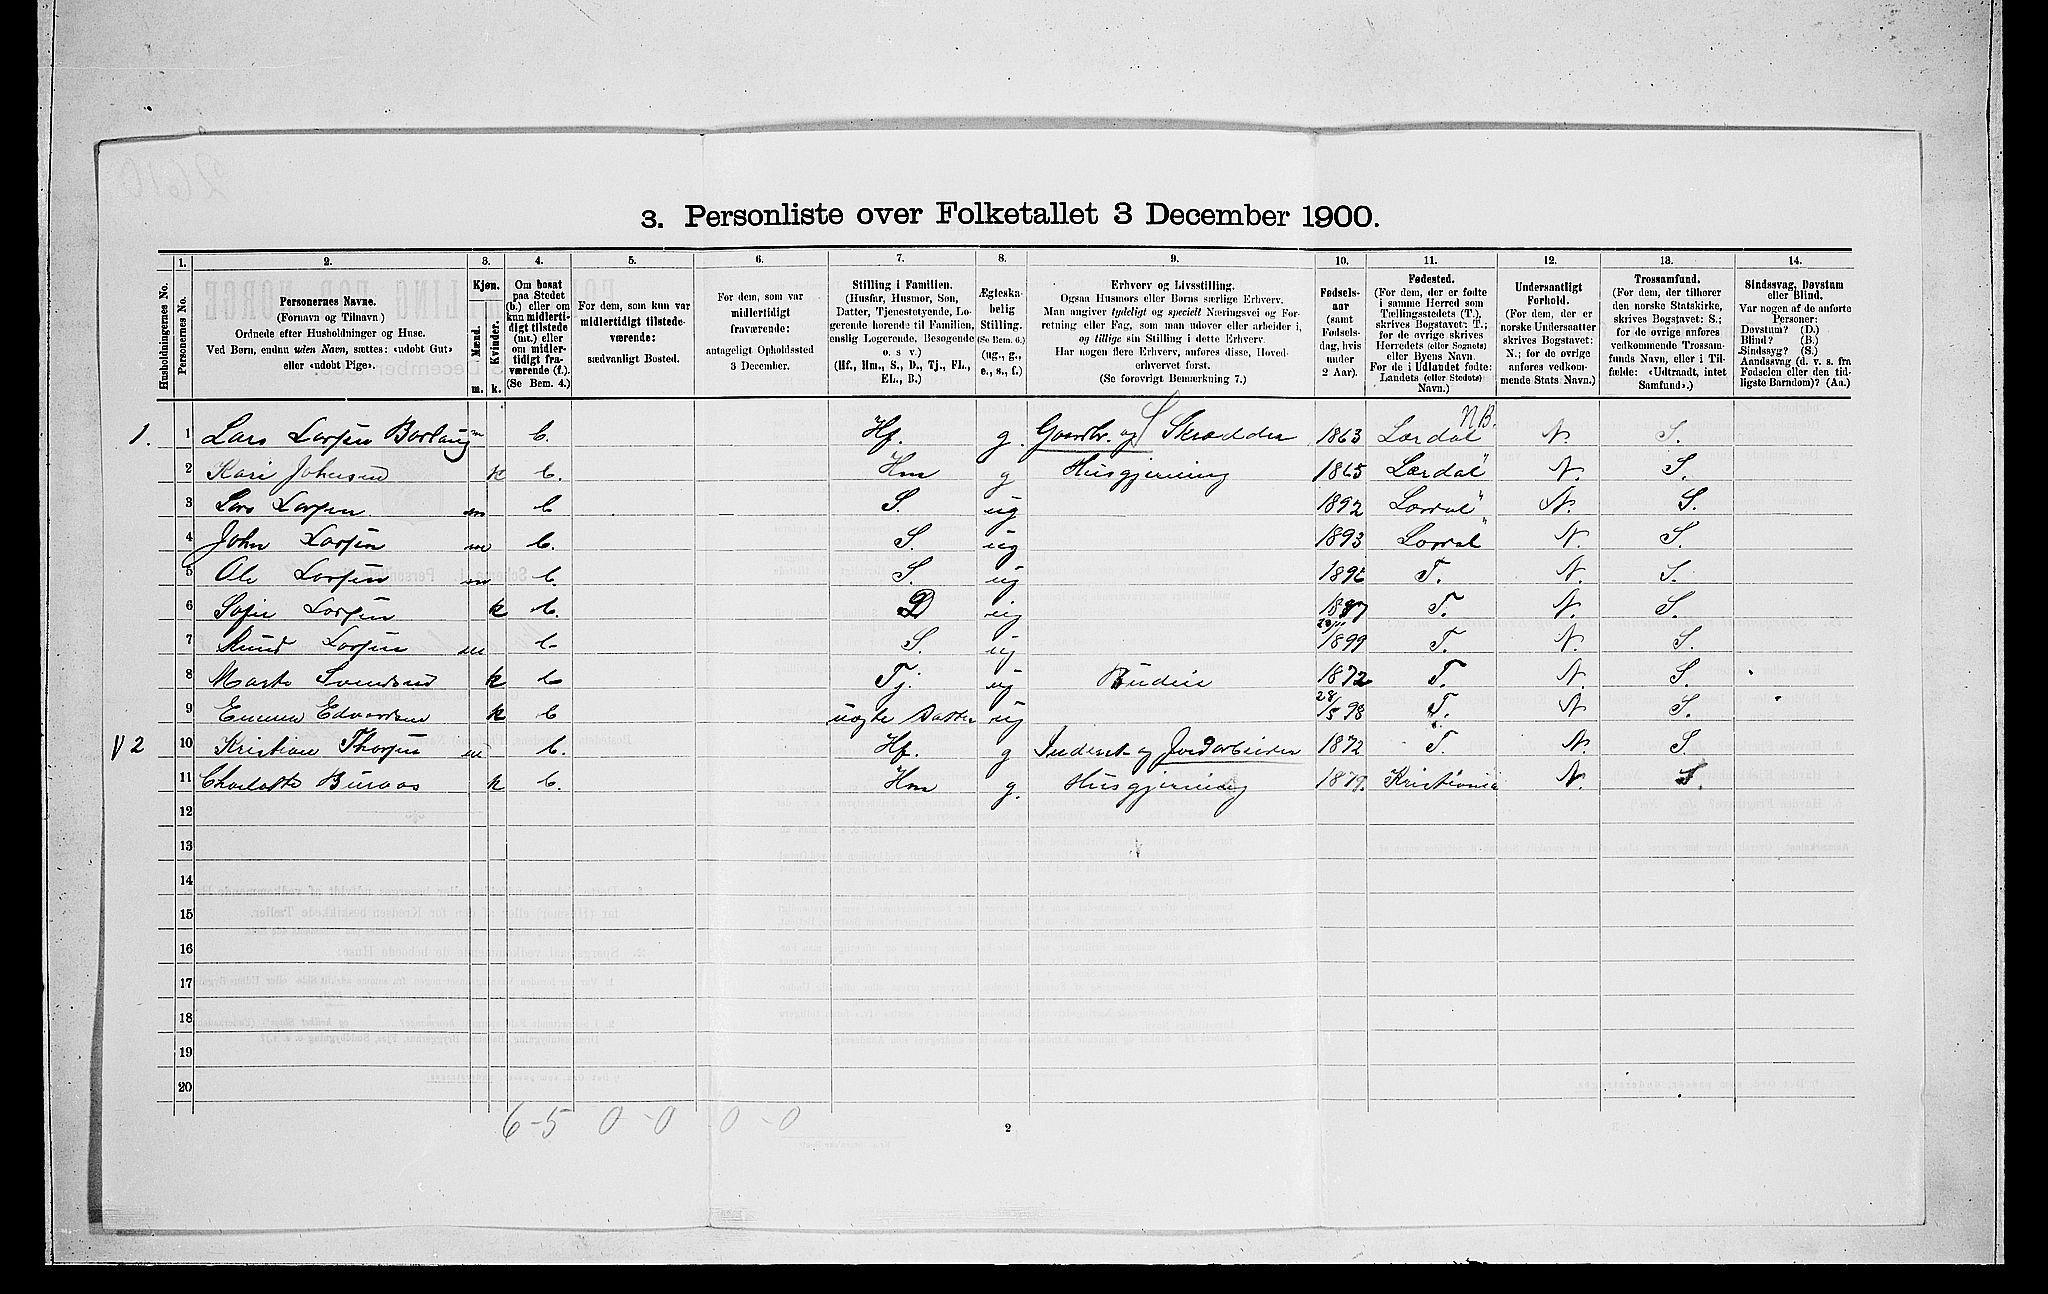 3. Personliste over Folketallet 3 December 1900.
Husholdningernes No.
1.
Personernes No.
2.
Personernes Navne.
(Fornavn og Tilnavn)
Ordnede efter Husholdninger og Huse.
Ved Børn, endnu uden Navn, sættes: «udøbt Gut»
eller «udøbt Pige».
3.
Kjøn.
Mænd.
Kvinder.
m. k.
4.
Om bosat
paa Stedet
(b.) eller om
kun midlerti-
digt tilstede
(mt.) eller
om midler-
tidigt fra-
værende (f.).
(Se Bem. 4.)
5.
For dem, som kun var
midlertidigt tilstede-
værende:
sædvanligt Bosted.
6.
For dem, som var
midlertidigt
fraværende:
antageligt Opholdssted
3 December.
7.
Stilling i Familien.
(Husfar, Husmor, Søn,
Datter, Tjenestetyende, Lo-
gerende hørende til Familien,
enslig Logerende, Besøgende
o. s v.)
(Hf., Hm., S., D., Tj., FL.,
EL., B.)
8.
Ægteska-
belig
Stilling.
(Se Bem. 6.)
(ug., g.,
e., s., f.)
9.
Erhverv og Livsstilling.
Ogsaa Husmors eller Børns særlige Erhverv.
Man angiver tydeligt og specielt Næringsvei og For-
retning eller Fag, som man udøver eller arbeider i,
og tillige sin Stilling i dette Erhverv.
Har nogen flere Erhverv, anføres disse, Hoved-
erhvervet først.
(Se forøvrigt Bemærkning 7.)
10.
Fødsels-
aar
(samt
Fødsels-
dag, hvis
under
2 Aar).
11.
Fødested.
(For dem, der er fødte
i samme Herred som
Tællingsstedets (T.),
skrives Bogstavet: T.;
for de øvrige skrives
Herredets (eller Sognets)
eller Byens Navn.
For de i Udlandet fødte:
Landets (eller Stedets)
Navn.)
12.
Undersaatligt
Forhold.
(For dem, der er
norske Undersaatter
skrives Bogstavet:
N.; for de øvrige
anføres vedkom-
mende Stats Navn.)
13.
Trossamfund.
(For dem, der tilhører
den norske Statskirke,
skrives Bogstavet: S.;
for de øvrige anføres
vedkommende Trossam-
funds Navn, eller i Til-
fælde: «Udtraadt, intet
Samfund».)
14.
Sindssvag, Døvstum
eller Blind.
Var nogen af de anførte
Personer:
Døvstum? (D.)
Blind? (B.)
Sindssyg? (S.)
Aandssvag (d. v. s. fra
Fødselen eller den tid-
ligste Barndom)? (Aa.)
NB.
1. 1 Lars Larsen Borlaug m b. Hf. g. Gaardbr. og Skrædder 1863 Lærdal N. S.
2 Kari Johnsen k b. Hm g Husgjerning 1865 Lærdal" N. S.
3 Lars Larsen m b S. ug 1892 Lærdal" N. S.
4 John Larsen m b. S. ug 1893 Lærdal" N. S.
5 Ole Larsen m b. S. ug T. N. S.
6 Sofie Larsen k b. D ug T. N. S.
7 Knud Larsen m b. S. ug 1899 T. N. S.
8 Marte Svendsen k b Tj. ug Budeie 1872 T. N. S.
9 Emma Edvardsen k b uægte Datter ug 28/5 98 T. N S.
2 10 Kristian Thorsen m b. Hf. g Inderst og Jordarbeider 1872 T. N. S
11 Charlotte k b. Hm g. Husgjerning 1879. Kristiania N. S.
12
13
14
15
16
17
18
19
20
6-5 0-0 0-0
2